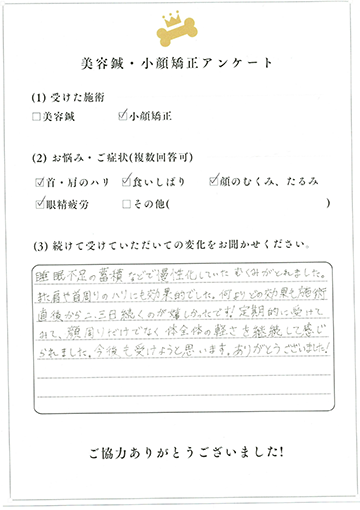 美容鍼・小顔矯正アンケート
(1) 受けた施術
□美容鍼 ☑小顔矯正
(2) お悩み・ご症状(複数回答可)
☑首・肩のハリ ☑食いしばり ☑顔のむくみ、たるみ
☑眼精疲労 □その他( )
(3) 続けて受けていただいての変化をお聞かせください。
睡眠不足の蓄積などで慢性化していたむくみがとれました。
また首や首周りのハリにも効果的でした。何よりどの効果も施術
直後から二、三日続くのが嬉しかったです!定期的に受けて
みて、顔周りだけでなく体全体の軽さを継続して感じ
られました。今後も受けようと思います。ありがとうございました!
ご協力ありがとうございました!